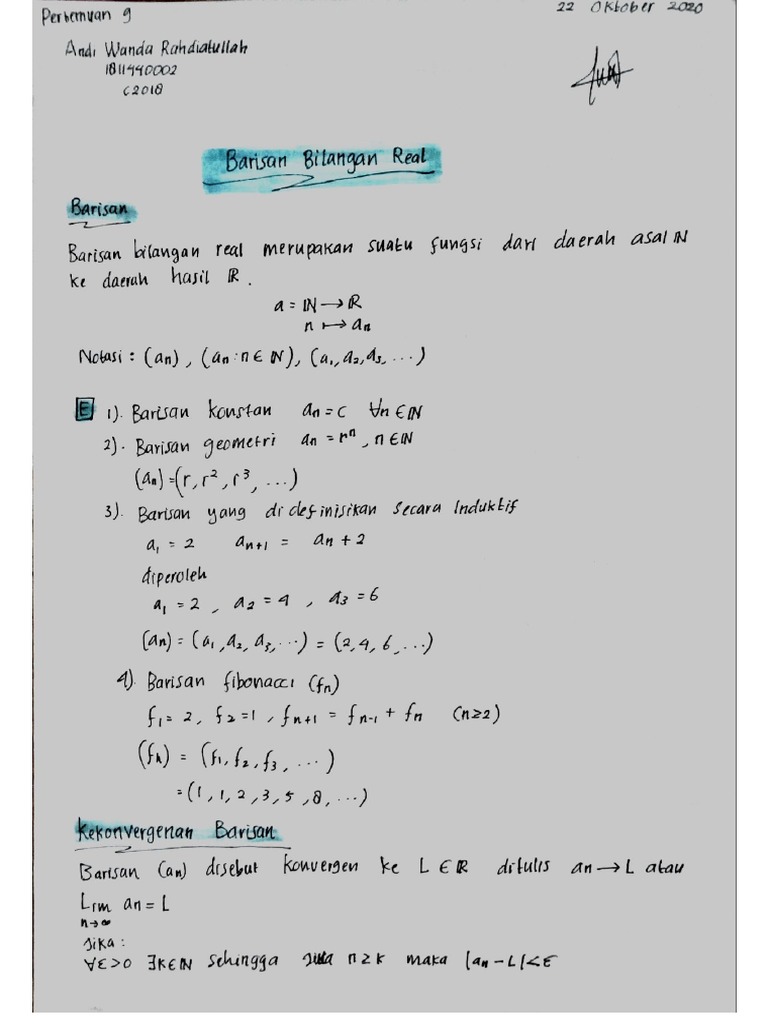 Pertemuan 9
22 Oktober 2020
Andi Wanda Rahdiatullah
1811440002
C2018
Barisan Bilangan Real
Barisan
Barisan bilangan real merupakan suatu fungsi dari daerah asal ℕ
ke daerah hasil ℝ.
a = ℕ → ℝ
n ↦ aₙ
Notasi : (an) , (an : n ∈ ℕ), (a₁, a₂, a₃, ...)
E 1). Barisan konstan an = c ∀n ∈ ℕ
2). Barisan geometri an = rⁿ, n ∈ ℕ
(an) = (r, r², r³, ...)
3). Barisan yang didefinisikan secara Induktif
a₁ = 2 aₙ₊₁ = an + 2
diperoleh
a₁ = 2 , a₂ = 4 , a₃ = 6
(an) = (a₁, a₂, a₃, ...) = (2, 4, 6, ...)
4). Barisan fibonacci (fn)
f₁ = 2, f₂ = 1, fₙ₊₁ = fₙ₋₁ + fn (n ≥ 2)
(fn) = (f₁, f₂, f₃, ...)
= (1, 1, 2, 3, 5, 8, ...)
Kekonvergenan Barisan
Barisan (an) disebut konvergen ke L ∈ ℝ ditulis an → L atau
Lim an = L
n→∞
Jika :
∀ε > 0 ∃K ∈ ℕ sehingga jika n ≥ k maka |an - L| < ε